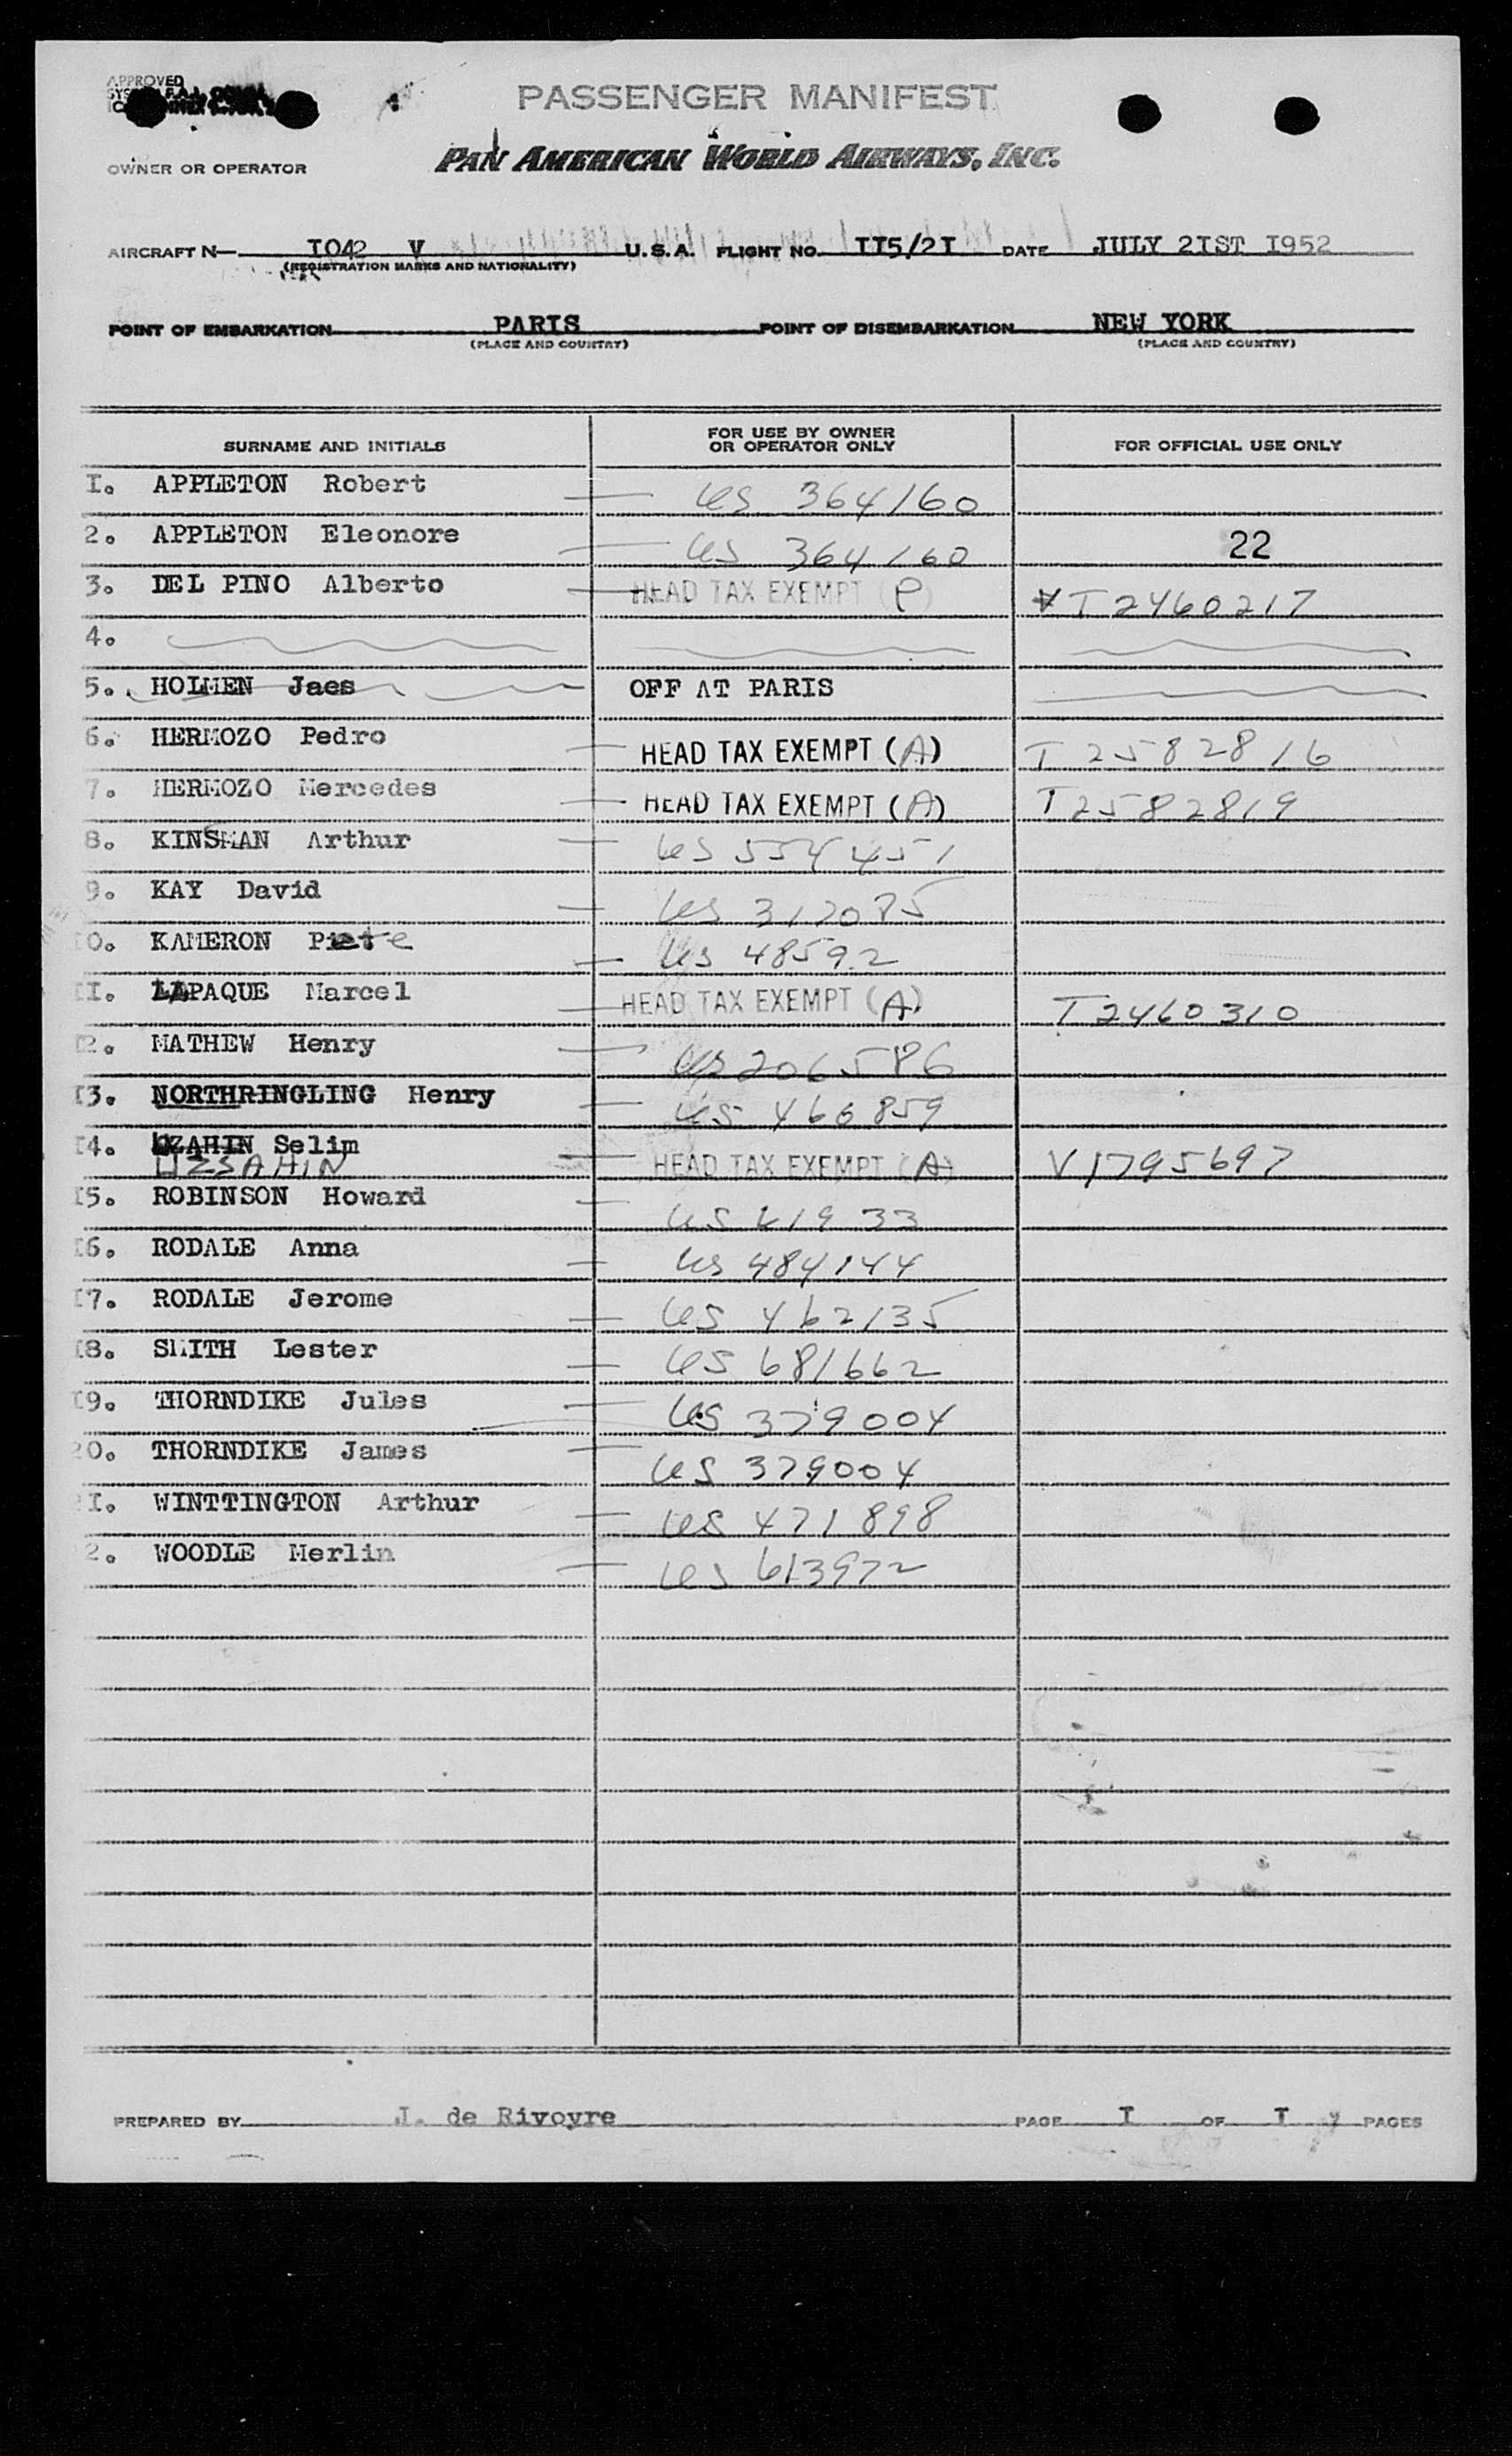 APPROVED
PASSENGER MANIFEST
OWNER OR OPERATOR PAN AMERICAN WORLD AIRWAYS, INC.
AIRCRAFT N— I042 V U.S.A. FLIGHT NO. II5/2I DATE JULY 2IST I952
(REGISTRATION MARKS AND NATIONALITY)
POINT OF EMBARKATION PARIS POINT OF DISEMBARKATION NEW YORK
(PLACE AND COUNTRY) (PLACE AND COUNTRY)
SURNAME AND INITIALS FOR USE BY OWNER OR OPERATOR ONLY FOR OFFICIAL USE ONLY
I. APPLETON Robert — US 364160
2. APPLETON Eleonore — US 364160 22
3. DEL PINO Alberto — HEAD TAX EXEMPT (P) T2460217
4.
5. HOLMEN Jaes OFF AT PARIS
6. HERMOZO Pedro — HEAD TAX EXEMPT (A) T 2582816
7. HERMOZO Mercedes — HEAD TAX EXEMPT (A) T2582819
8. KINSMAN Arthur — US 554451
9. KAY David — US 317085
I0. KAMERON Pete — US 48592
II. LAPAQUE Marcel — HEAD TAX EXEMPT (A) T2460310
I2. MATHEW Henry — US 206586
I3. NORTHRINGLING Henry — US 466859
I4. UZAHIN Selim — HEAD TAX EXEMPT (A) V1795697
UZSAHIN
I5. ROBINSON Howard — US 61933
I6. RODALE Anna — US 484144
I7. RODALE Jerome — US 462135
I8. SMITH Lester — US 681662
I9. THORNDIKE Jules — US 379004
20. THORNDIKE James — US 379004
2I. WINTTINGTON Arthur — US 471898
22. WOODLE Merlin — US 613972
PREPARED BY J. de Rivoyre PAGE I OF I PAGES